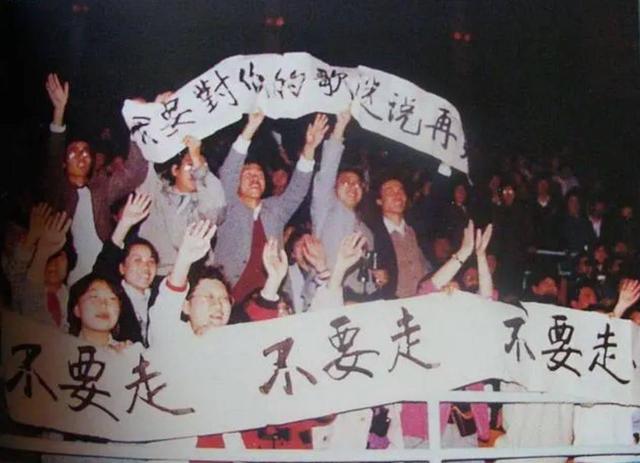 不要對你的歌迷说再
不要走 不要走 不要走